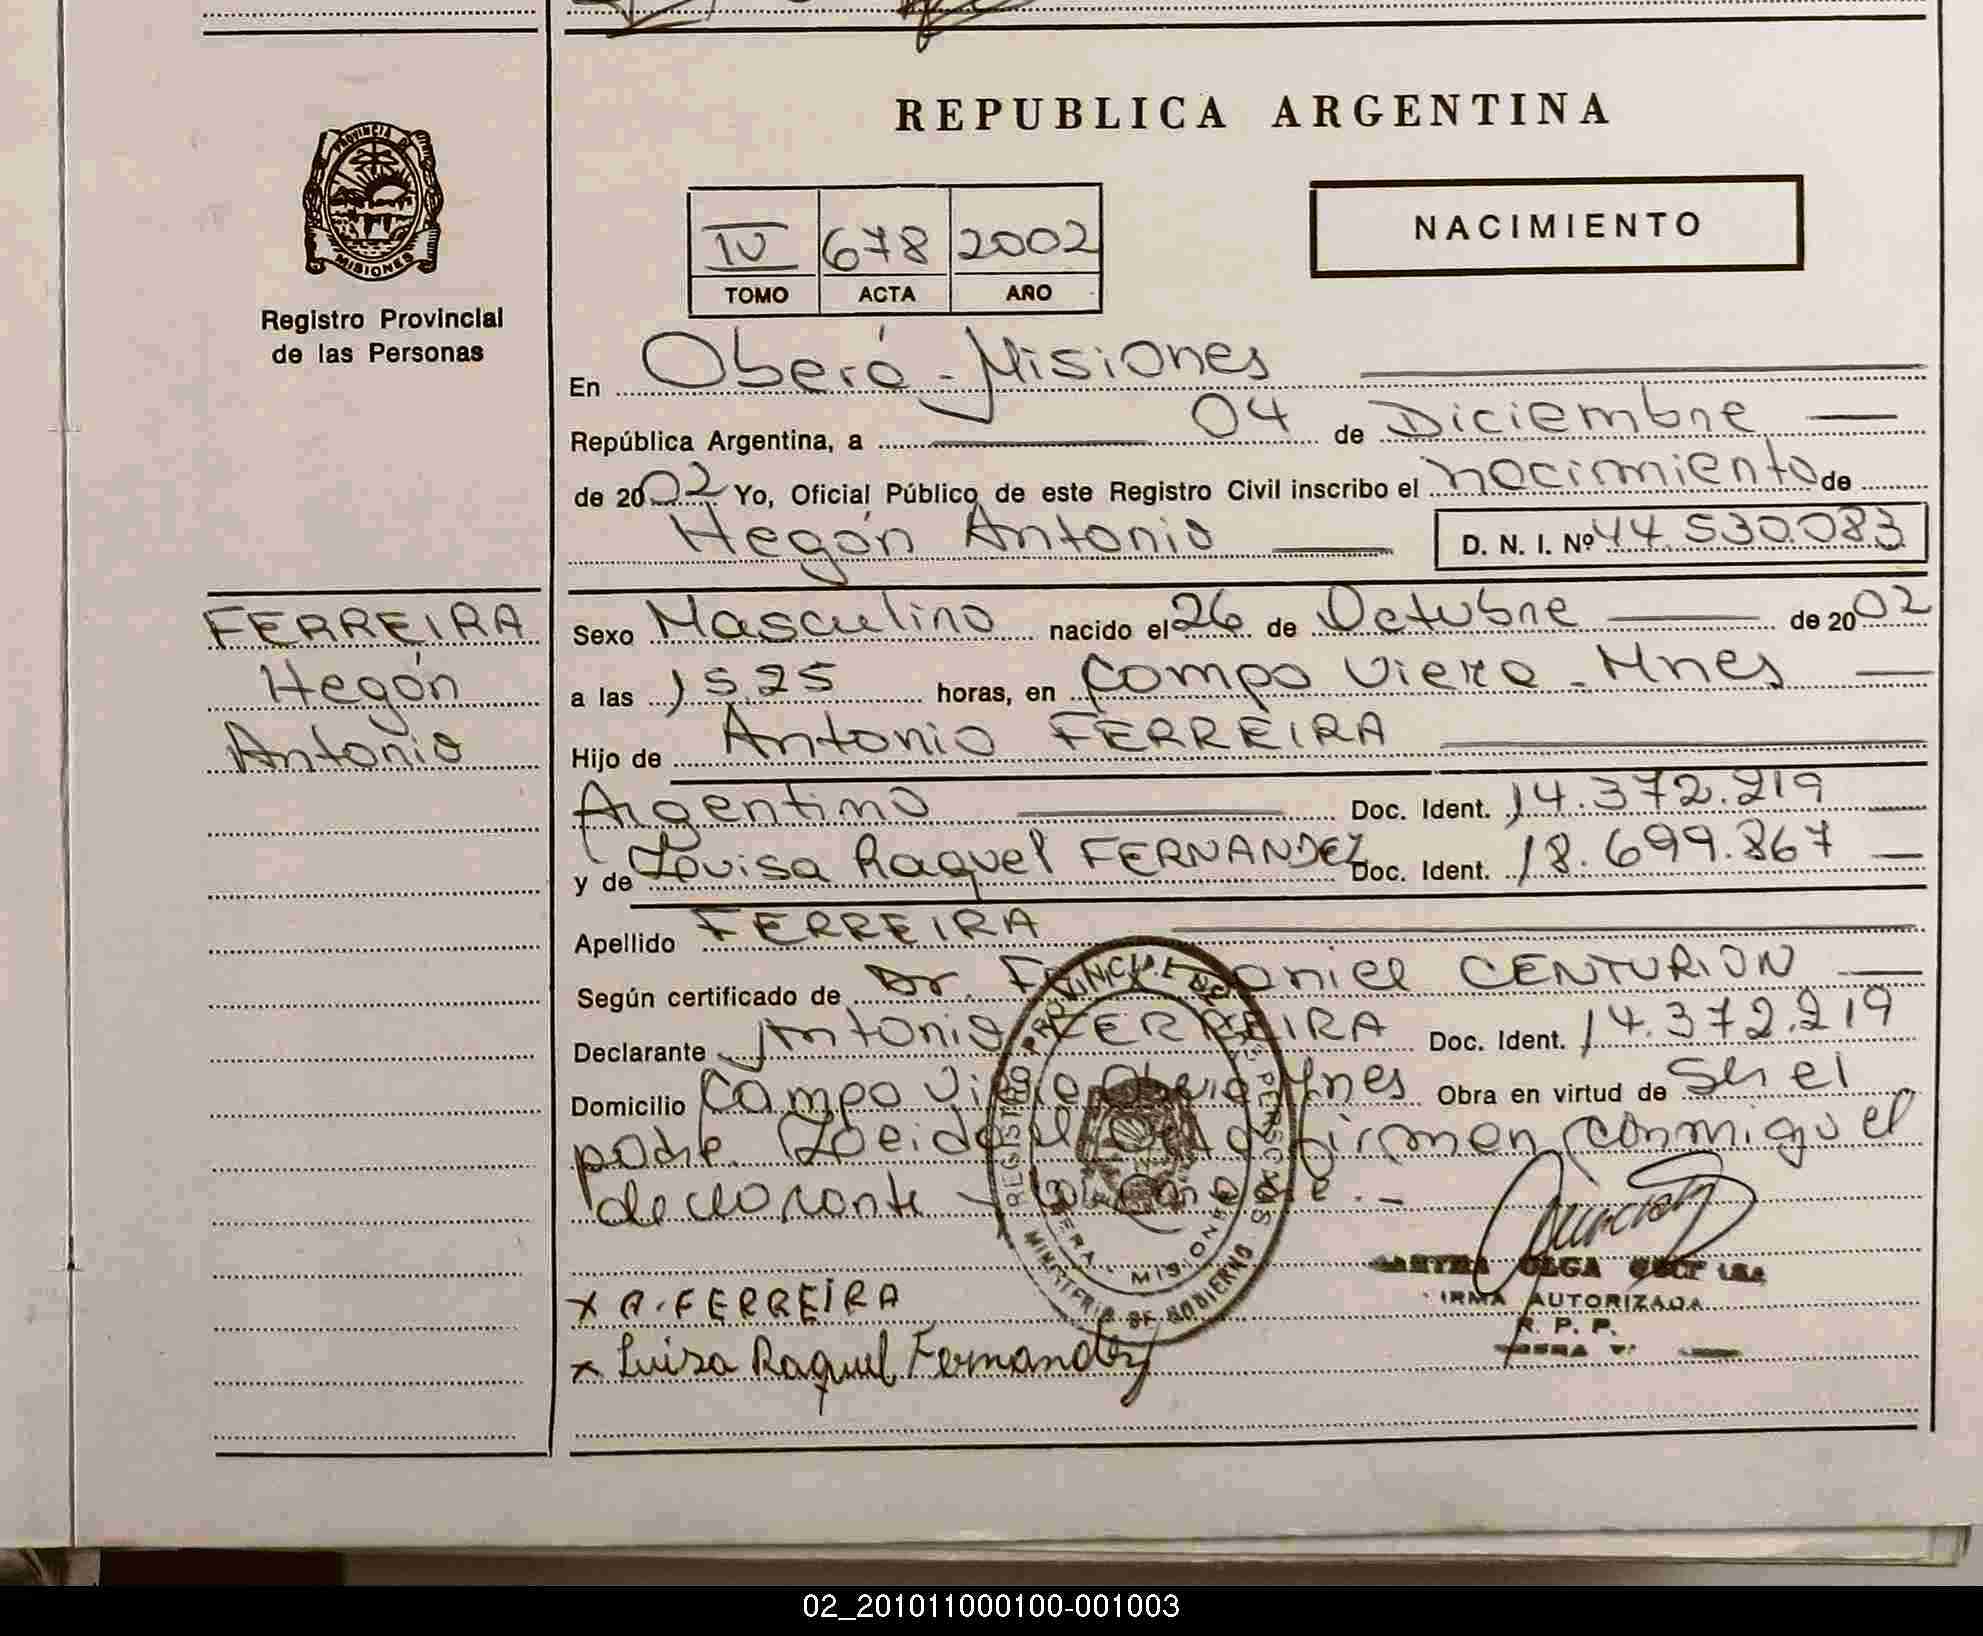 PROVINCIA DE
MISIONES
Registro Provincial
de las Personas
REPUBLICA ARGENTINA
NACIMIENTO
IV 678 2002
TOMO ACTA AÑO
En Oberá - Misiones
República Argentina, a 04 de Diciembre
de 2002 Yo, Oficial Público de este Registro Civil inscribo el nacimiento de
Hegón Antonio D. N. I. Nº 44.530.083
FERREIRA
Hegón
Antonio
Sexo Masculino nacido el 26 de Octubre de 2002
a las 15.25 horas, en Campo Viera - Mnes
Hijo de Antonio FERREIRA
Argentino Doc. Ident. 14.372.219
y de Louisa Raquel FERNANDEZ Doc. Ident. 18.699.867
Apellido FERREIRA
Según certificado de Dr. Daniel CENTURION
Declarante Antonio FERREIRA Doc. Ident. 14.372.219
Domicilio Campo Viera Oberá Mnes Obra en virtud de Ser el
padre. Leida el acta firman conmigo el
declarante y
REGISTRO PROVINCIAL DE LAS PERSONAS
MINISTERIO DE GOBIERNO
OBERA - MISIONES
x A. FERREIRA
x Luisa Raquel Fernandez
OLGA
FIRMA AUTORIZADA
R. P. P.
02_201011000100-001003